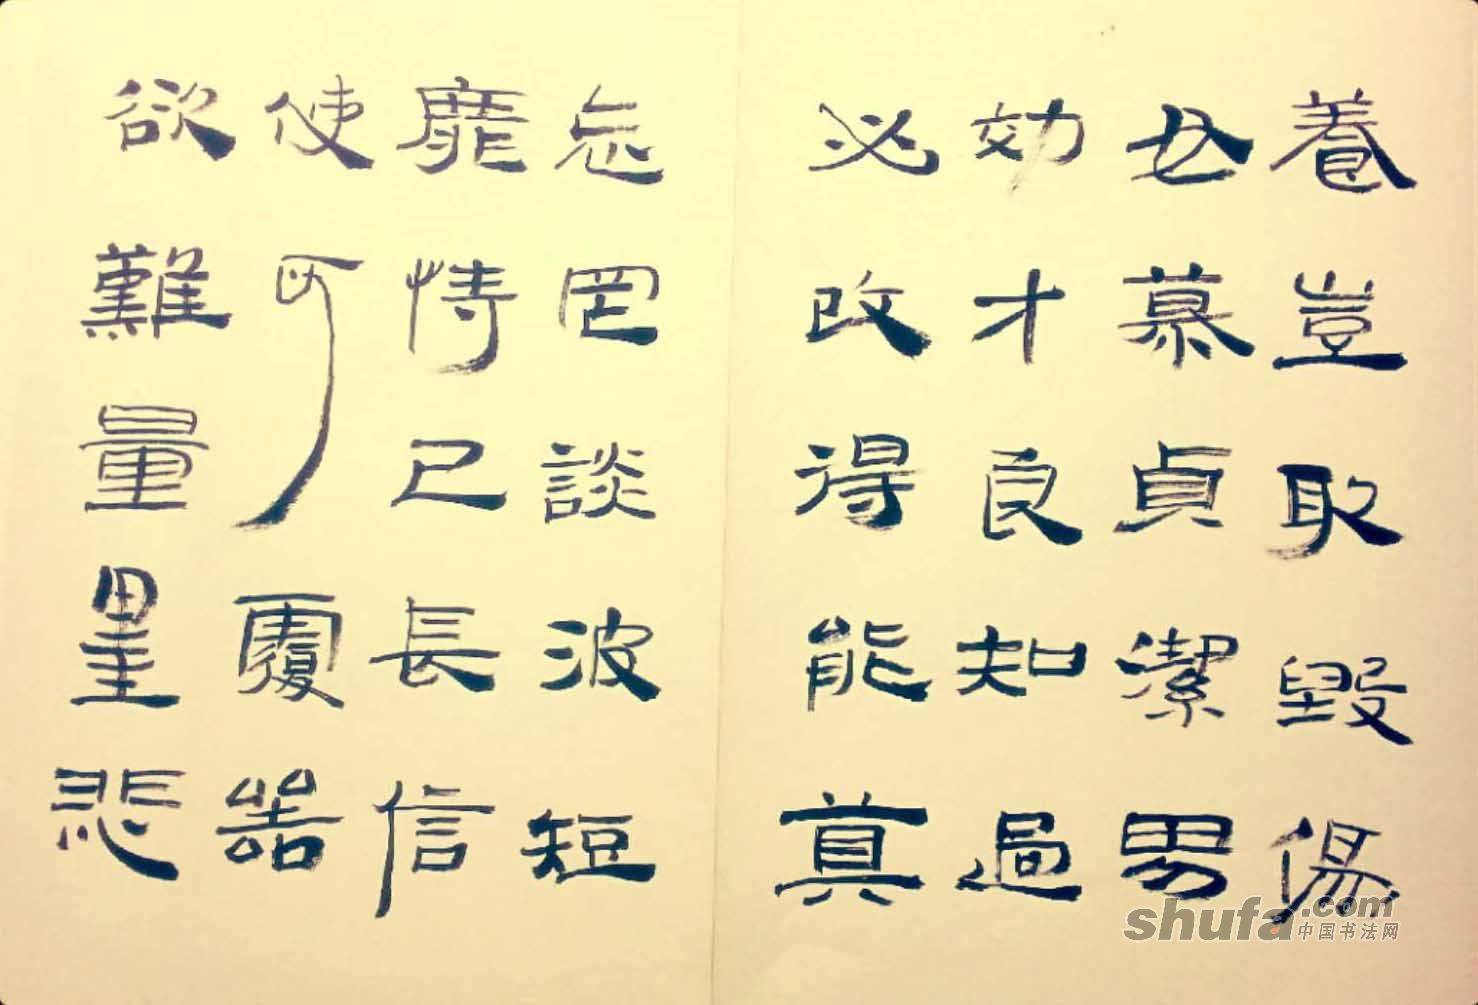 養豈取毀傷
女慕貞潔男
効才良知過
必改得能莫
忘罔談波短
靡恃己長信
使可覆器
欲難量墨悲
shufa.com
中国书法网